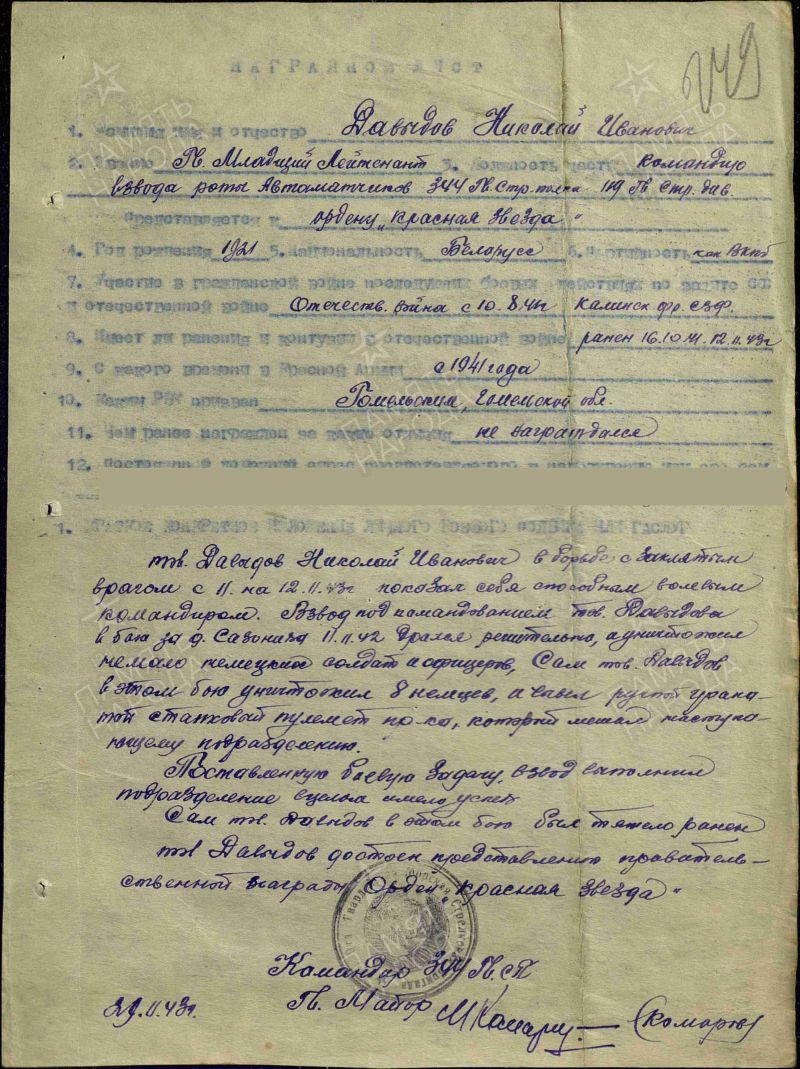 249
НАГРАДНОЙ ЛИСТ
1. Фамилия имя и отчество Давыдов Николай Иванович
2. Звание Гв. Младший Лейтенант 3. Должность, часть командир
взвода роты Автоматчиков 344 Гв. Стр. полка 119 Гв. Стр. див.
Представляется к ордену „Красная звезда"
4. Год рождения 1921 5. Национальность Белорусс 6. Партийность кан ВКПб
7. Участие в гражданской войне последующих боевых действиях по защите СССР
и отечественной войне Отечеств. война с 10.8.41г Калинск фр. СЗФ.
8. Имеет ли ранения и контузии в отечественной войне ранен 16.10.41. 12.11.43г
9. С какого времени в Красной Армии с 1941 года
10. Каким РВК призван Гомельским, Гомелской обл.
11. Чем ранее награжден за какие отличия не награждался
12. Постоянный домашний адрес
1. КРАТКОЕ КОНКРЕТНОЕ ИЗЛОЖЕНИЕ ЛИЧНОГО БОЕВОГО ПОДВИГА ИЛИ ЗАСЛУГ
тов. Давыдов Николай Иванович в борьбе с заклятым
врагом с 11. на 12.11.43г показал себя способным волевым
командиром. Взвод под командованием тов. Давыдова
в бою за д. 11.11.42 дрался решительно, и уничтожил
немало немецких солдат и офицеров, Сам тов. Давыдов
в этом бою уничтожил 8 немцев, и ручной грана-
той станковый пулемет пр-ка, который мешал наступа-
ющему подразделению.
Поставленную боевую задачу, взвод выполнил
подразделение вцелом имело успех
Сам тов. Давыдов в этом бою был тяжело ранен
тов Давыдов достоен представлению правитель-
ственной награды Орден „Красная звезда"
Командир 344 Гв. СП
Гв. Майор (Комаров)
29.11.43г.
ПАМЯТЬ НАРОДА